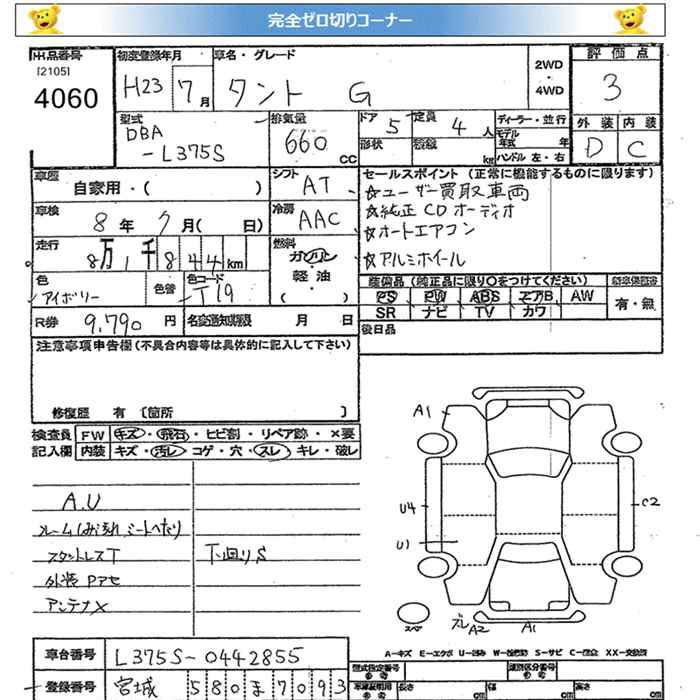 完全ゼロ切りコーナー
出品番号 初度登録年月 車名・グレード 2WD ・ 4WD 評価点
[2105]
4060 H23 7月 タント G 3
型式 排気量 ドア 5 定員 4人 ディーラー・並行 外装 内装
DBA 660 CC 形状 モデル年式 年 D C
-L375S kg ハンドル 左・右
車歴 自家用・( ) シフト AT セールスポイント (正常に機能するものに限ります)
車検 8年 7月( 日) 冷房 AAC ☆ユーザー買取車両
☆純正CDオーディオ
走行 8万1千844km 燃料 ガソリン ☆オートエアコン
軽油 ☆アルミホイール
( )
色 アイボリー 色替 色コード T19 装備品 (純正品に限り○をつけてください)
PS PW ABS エアB AW 有・無
SR ナビ TV カワ
R券 9,790円 名変通知期限 月 日 後日品
注意事項申告欄 (不具合内容等は具体的に記入して下さい)
修復歴 有 [箇所 ]
検査員 FW キズ・飛石・ヒビ割・リペア跡・×要
記入欄 内装 キズ・汚レ・コゲ・穴・スレ・キレ・破レ
A.U
スタットレスT 下回りS
外装 Pアセ
アンテナX
A1
U4 C2
U1
スペア ズレ A2 A1
A-キズ E-エクボ U-凹み W-波凹み S-サビ C-腐食 XX-交換済
車台番号 L375S-0442855
型式指定番号 類別区分番号
登録番号 宮城 580ま7093
長さ cm 幅 cm 高さ cm